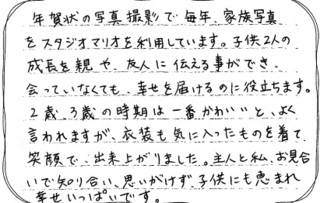 年賀状の写真撮影で毎年、家族写真
をスタジオマリオを利用しています。子供2人の
成長を親や、友人に伝える事ができ、
会っていなくても、幸せを届けるのに役立ちます。
2歳、3歳の時期は一番かわいいと、よく
言われますが、衣装も気に入ったものを着て、
笑顔で、出来上がりました。主人と私、お見合
いで知り合い、思いがけず、子供にも恵まれ
幸せいっぱいです。